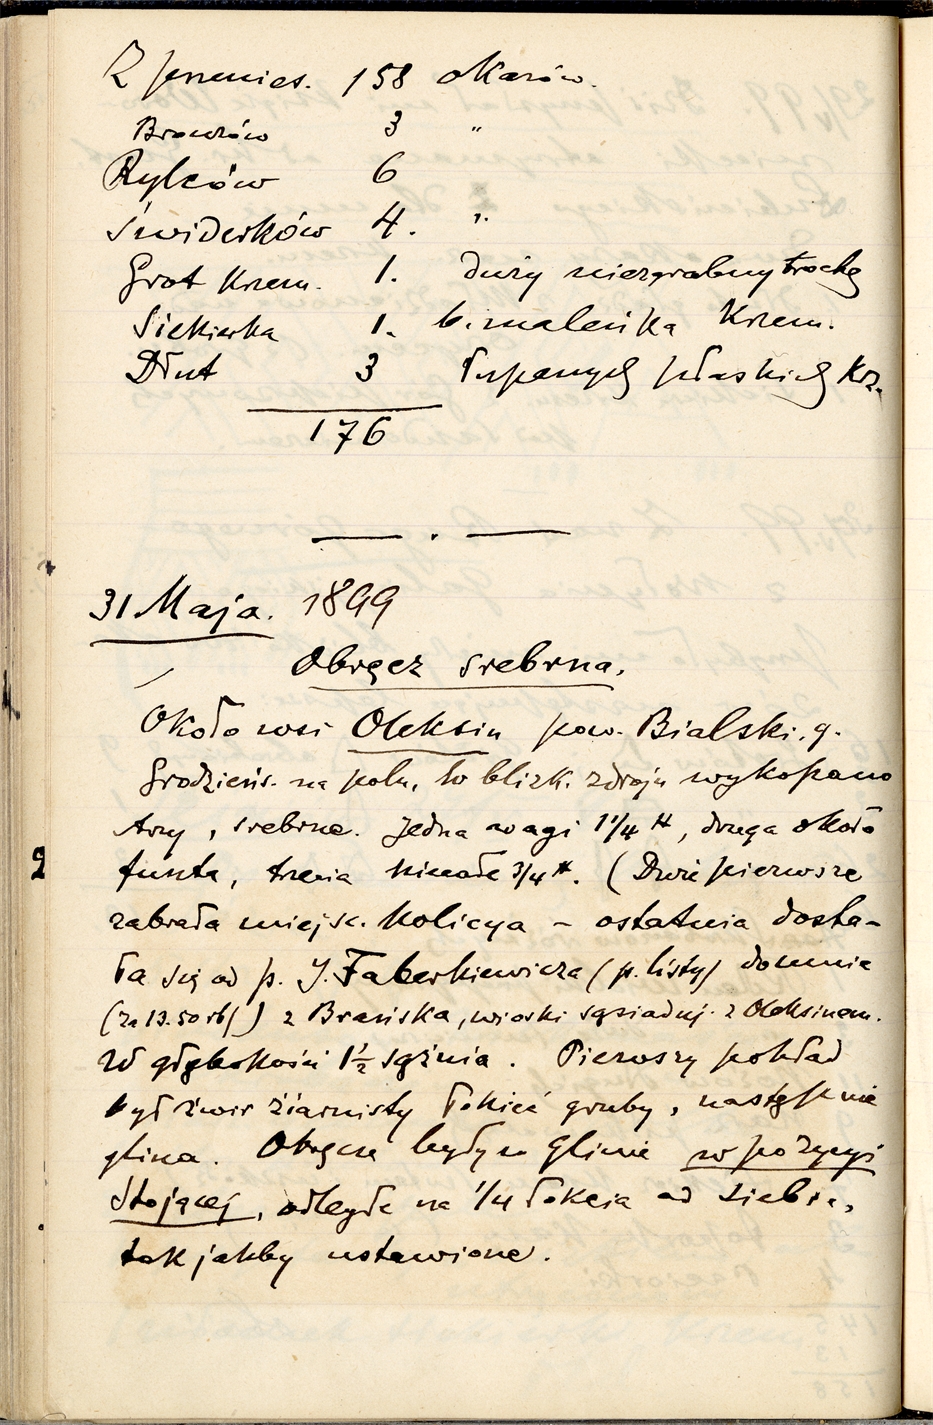 Z przenies. 158 okazów.
Bronzów 3 „
Rylców 6
Świderków 4. „
Grot Krzem. 1. duży niezgrabny trochę
Siekierka 1. b. maleńka Krzem.
Dłut 3 łupanych płaskich Krz.
176
31 Maja. 1899
Obręcz srebrna.
Około wsi Oleksin pow. Bialski. g.
Grodzieńs. na polu, w blizk. zdroju wykopano
trzy, srebrne. Jedna wagi 1 1/4 ℔, druga około
funta, trzecia niecałe 3/4 ℔. (Dwie pierwsze
zabrała miejsc. Policya – ostatnia dosta-
ła się od p. J. Faberkiewicza (p. listy) do mnie
(za 13.50 rb/) z Brańska, wioski sąsiadniej z Oleksinem.
W głębokości 1 1/2 sążnia. Pierwszy pokład
był żwir ziarnisty łokieć gruby, następnie
glina. Obręcze były w glinie w pozycyi
stojącej, odległe na 1/4 łokcia od siebie,
tak jakby ustawione.